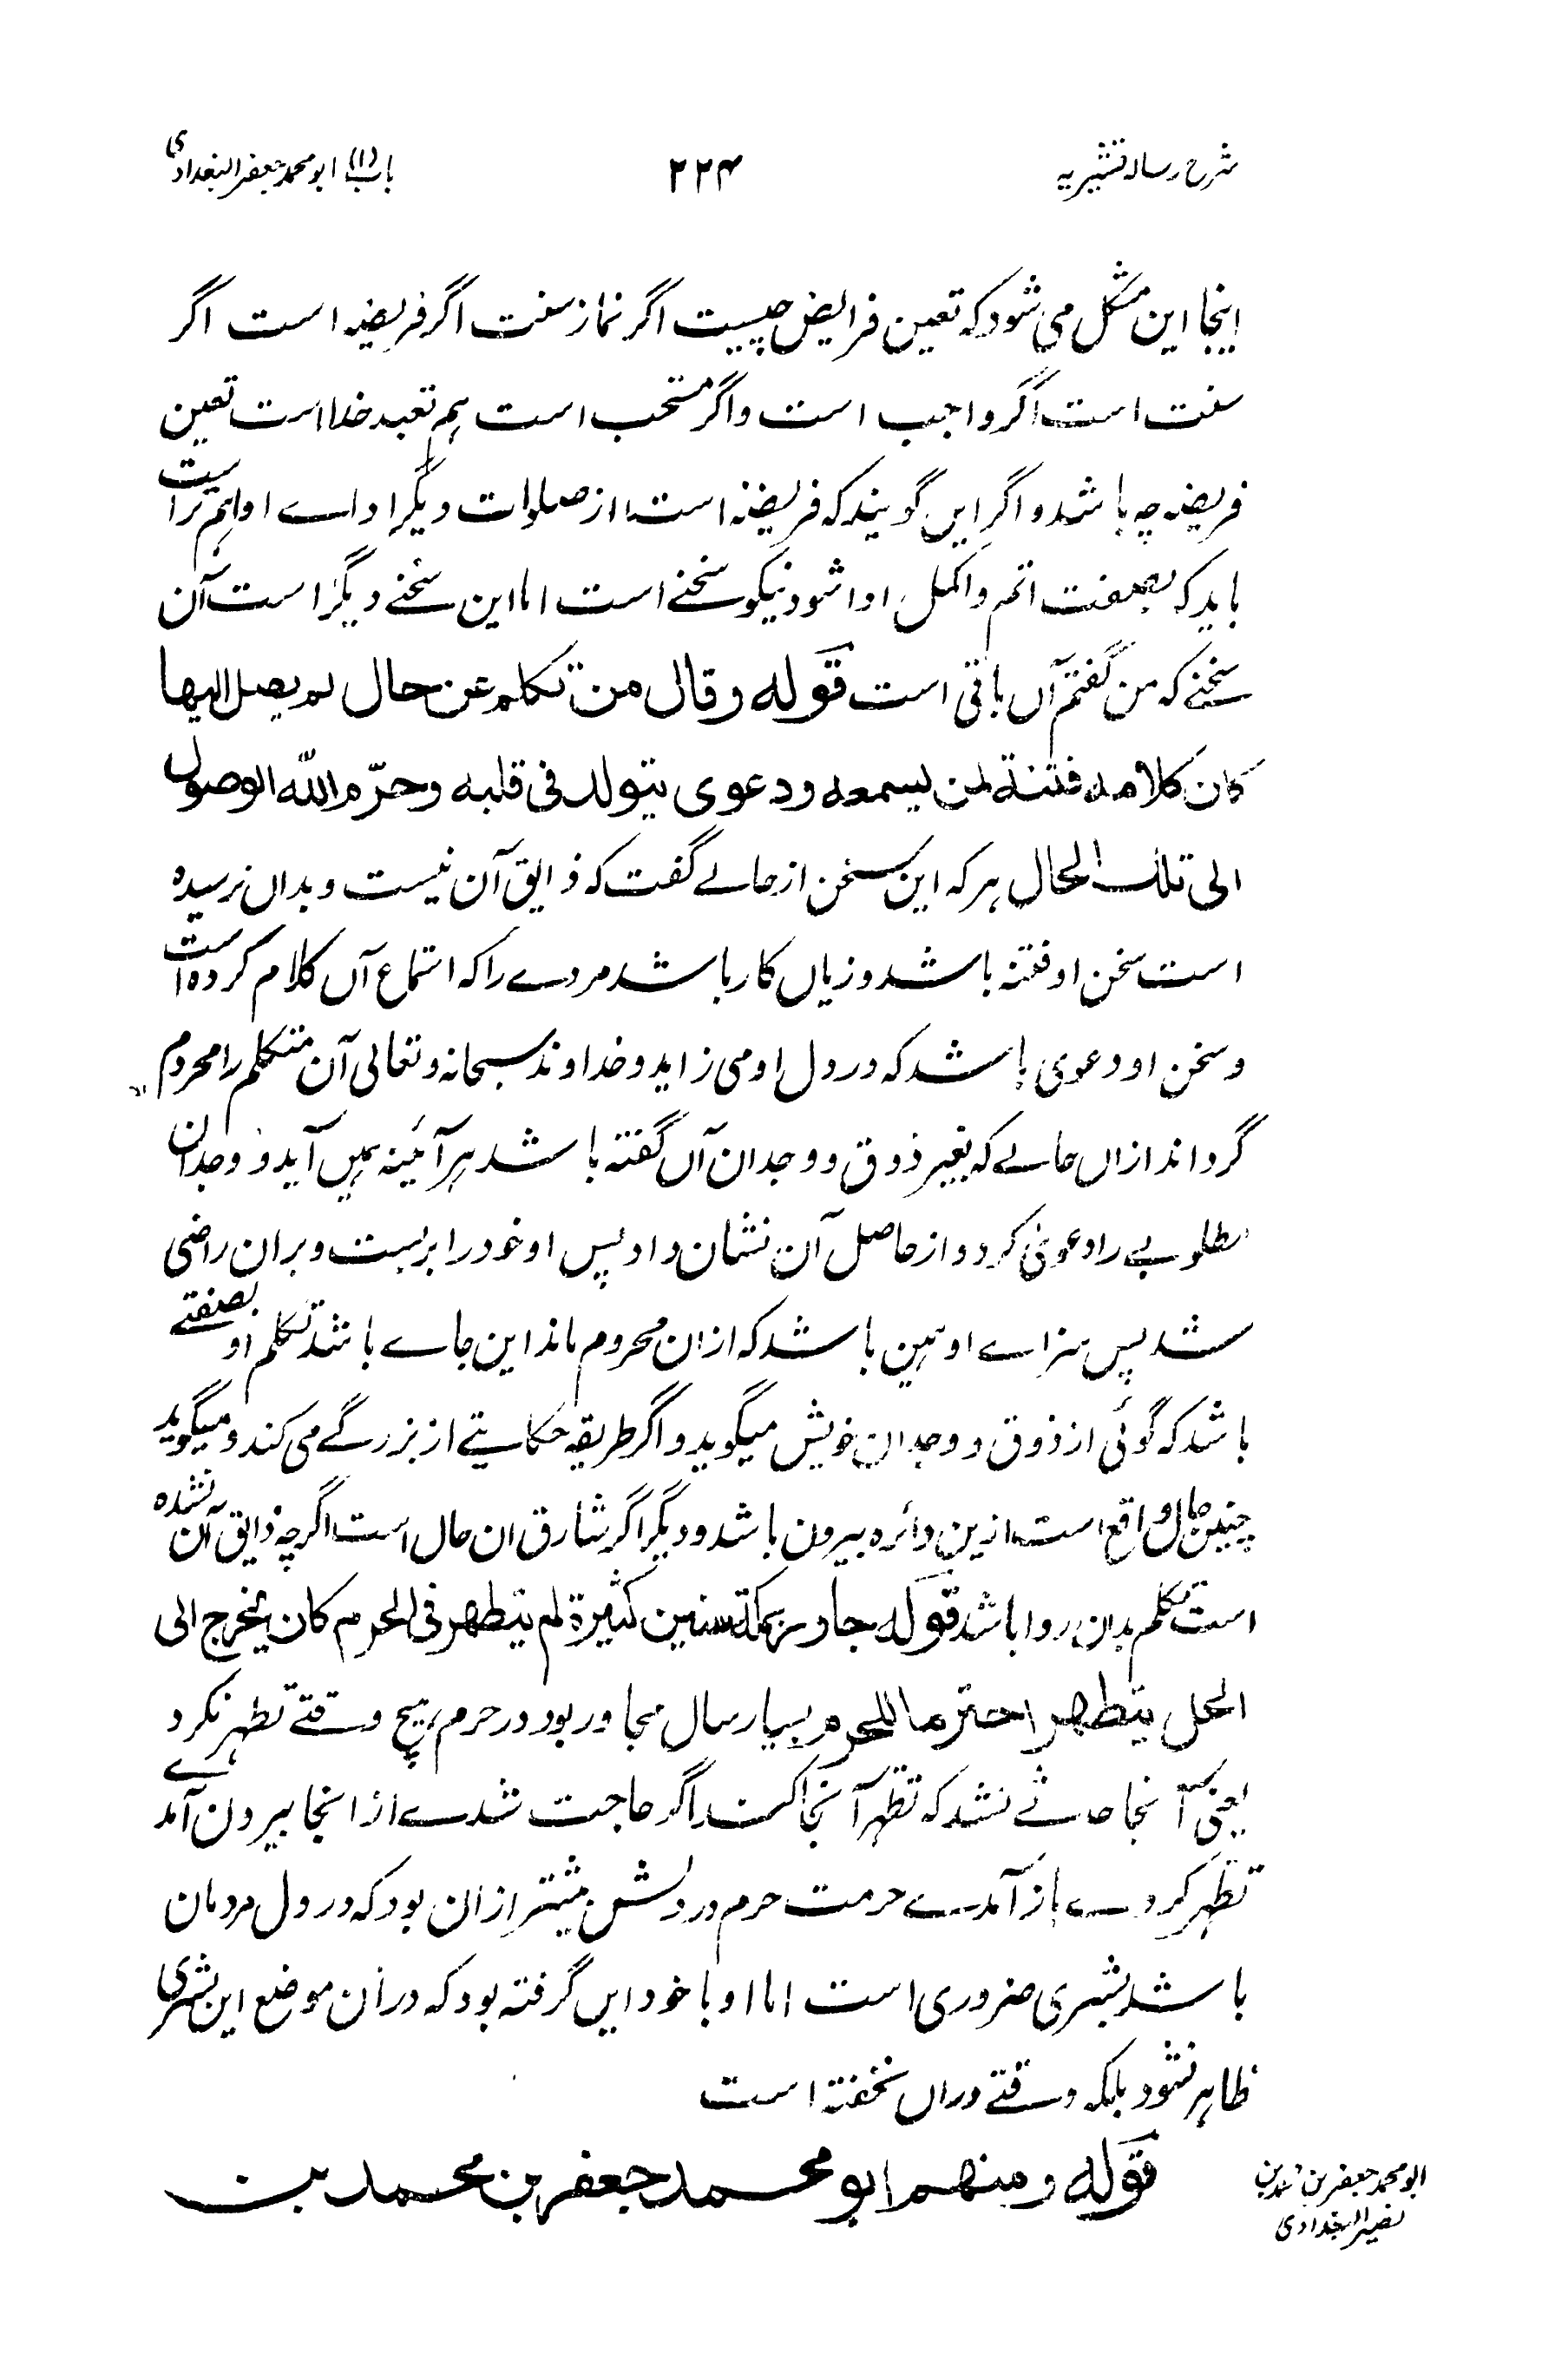 شرح رسالہ قشیریہ
۲۲۴
باب (۱) ابو محمد جعفر البغدادی
اینجا این مشکل می شود کہ تعین فرایض چیست اگر نماز سنت اگر فریضہ است اگر
سنت است اگر واجب است واگر مستحب است ہم تعبد خدا است تعین
فریضہ چہ باشد و اگر این گویند کہ فریضہ است از صلوات دیگر اداے او اہم تر است
باید کہ بصفت اتم و اکمل ادا شود نیکو سخنے است اما این سخنے دیگر است آن
سخنے کہ من گفتم آں باقی است قوله وقال من تکلم عن حال لم یصل الیها
کان کلامه فتنة لمن یسمعه ودعوی یتولد فی قلبه وحرّم الله الوصول
الی تلک الحال ہر کہ این سخن از حالے گفت کہ ذایق آن نیست و بداں نرسیدہ
است سخن او فتنہ باشد و زیاں کار باشد مردے را کہ استماع آں کلام کردہ است
و سخن او دعوی باشد کہ در دل او می زاید و خداوند سبحانہ و تعالی آن متکلم را محروم
گرداند ازاں حالے کہ بغیر ذوق و وجدان آں گفتہ باشد ہر آئینہ ہمیں آید و وجدان
مطلوبے را دعوی کرد و از حاصل آن نشان داد پس او خود را بربست و بران راضی
شد پس سزاے او ہمین باشد کہ ازان محروم ماند این جاے باشد تکلم او بصفتے
باشد کہ گوئی از ذوق و وجدان خویش میگوید و اگر طریقہ حکایتے از بزرگے می کند و میگوید
چنین حال واقع است ازین دائرہ بیرون باشد و دیگر اگر شارق ان حال است اگرچہ ذایق آن نشدہ
است تکلم بدان روا باشد قوله جاور بمکة سنین کثیرة لم یتطهر فی الحرم کان یخرج الی
الحل یتطهر احترما للحرم بسیار سال مجاور بود در حرم ہیچ وقتے تطہر نکرد
یعنی آنجا حادثے نشد کہ تطہر آنجا کند اگر حاجت شدے از انجا بیرون آمدے
تطہر کردے باز آمدے حرمت حرم در دلش بیشتر ازان بود کہ در دل مردمان
باشد بشری ضروری است اما او با خود ایں گرفتہ بود کہ دران موضع این بشری
ظاہر نشود بلکہ وقتے دراں نخفتہ است
قوله ومنهم ابو محمد جعفر بن محمد بن
ابو محمد جعفر بن محمد بن
نصیر البغدادی